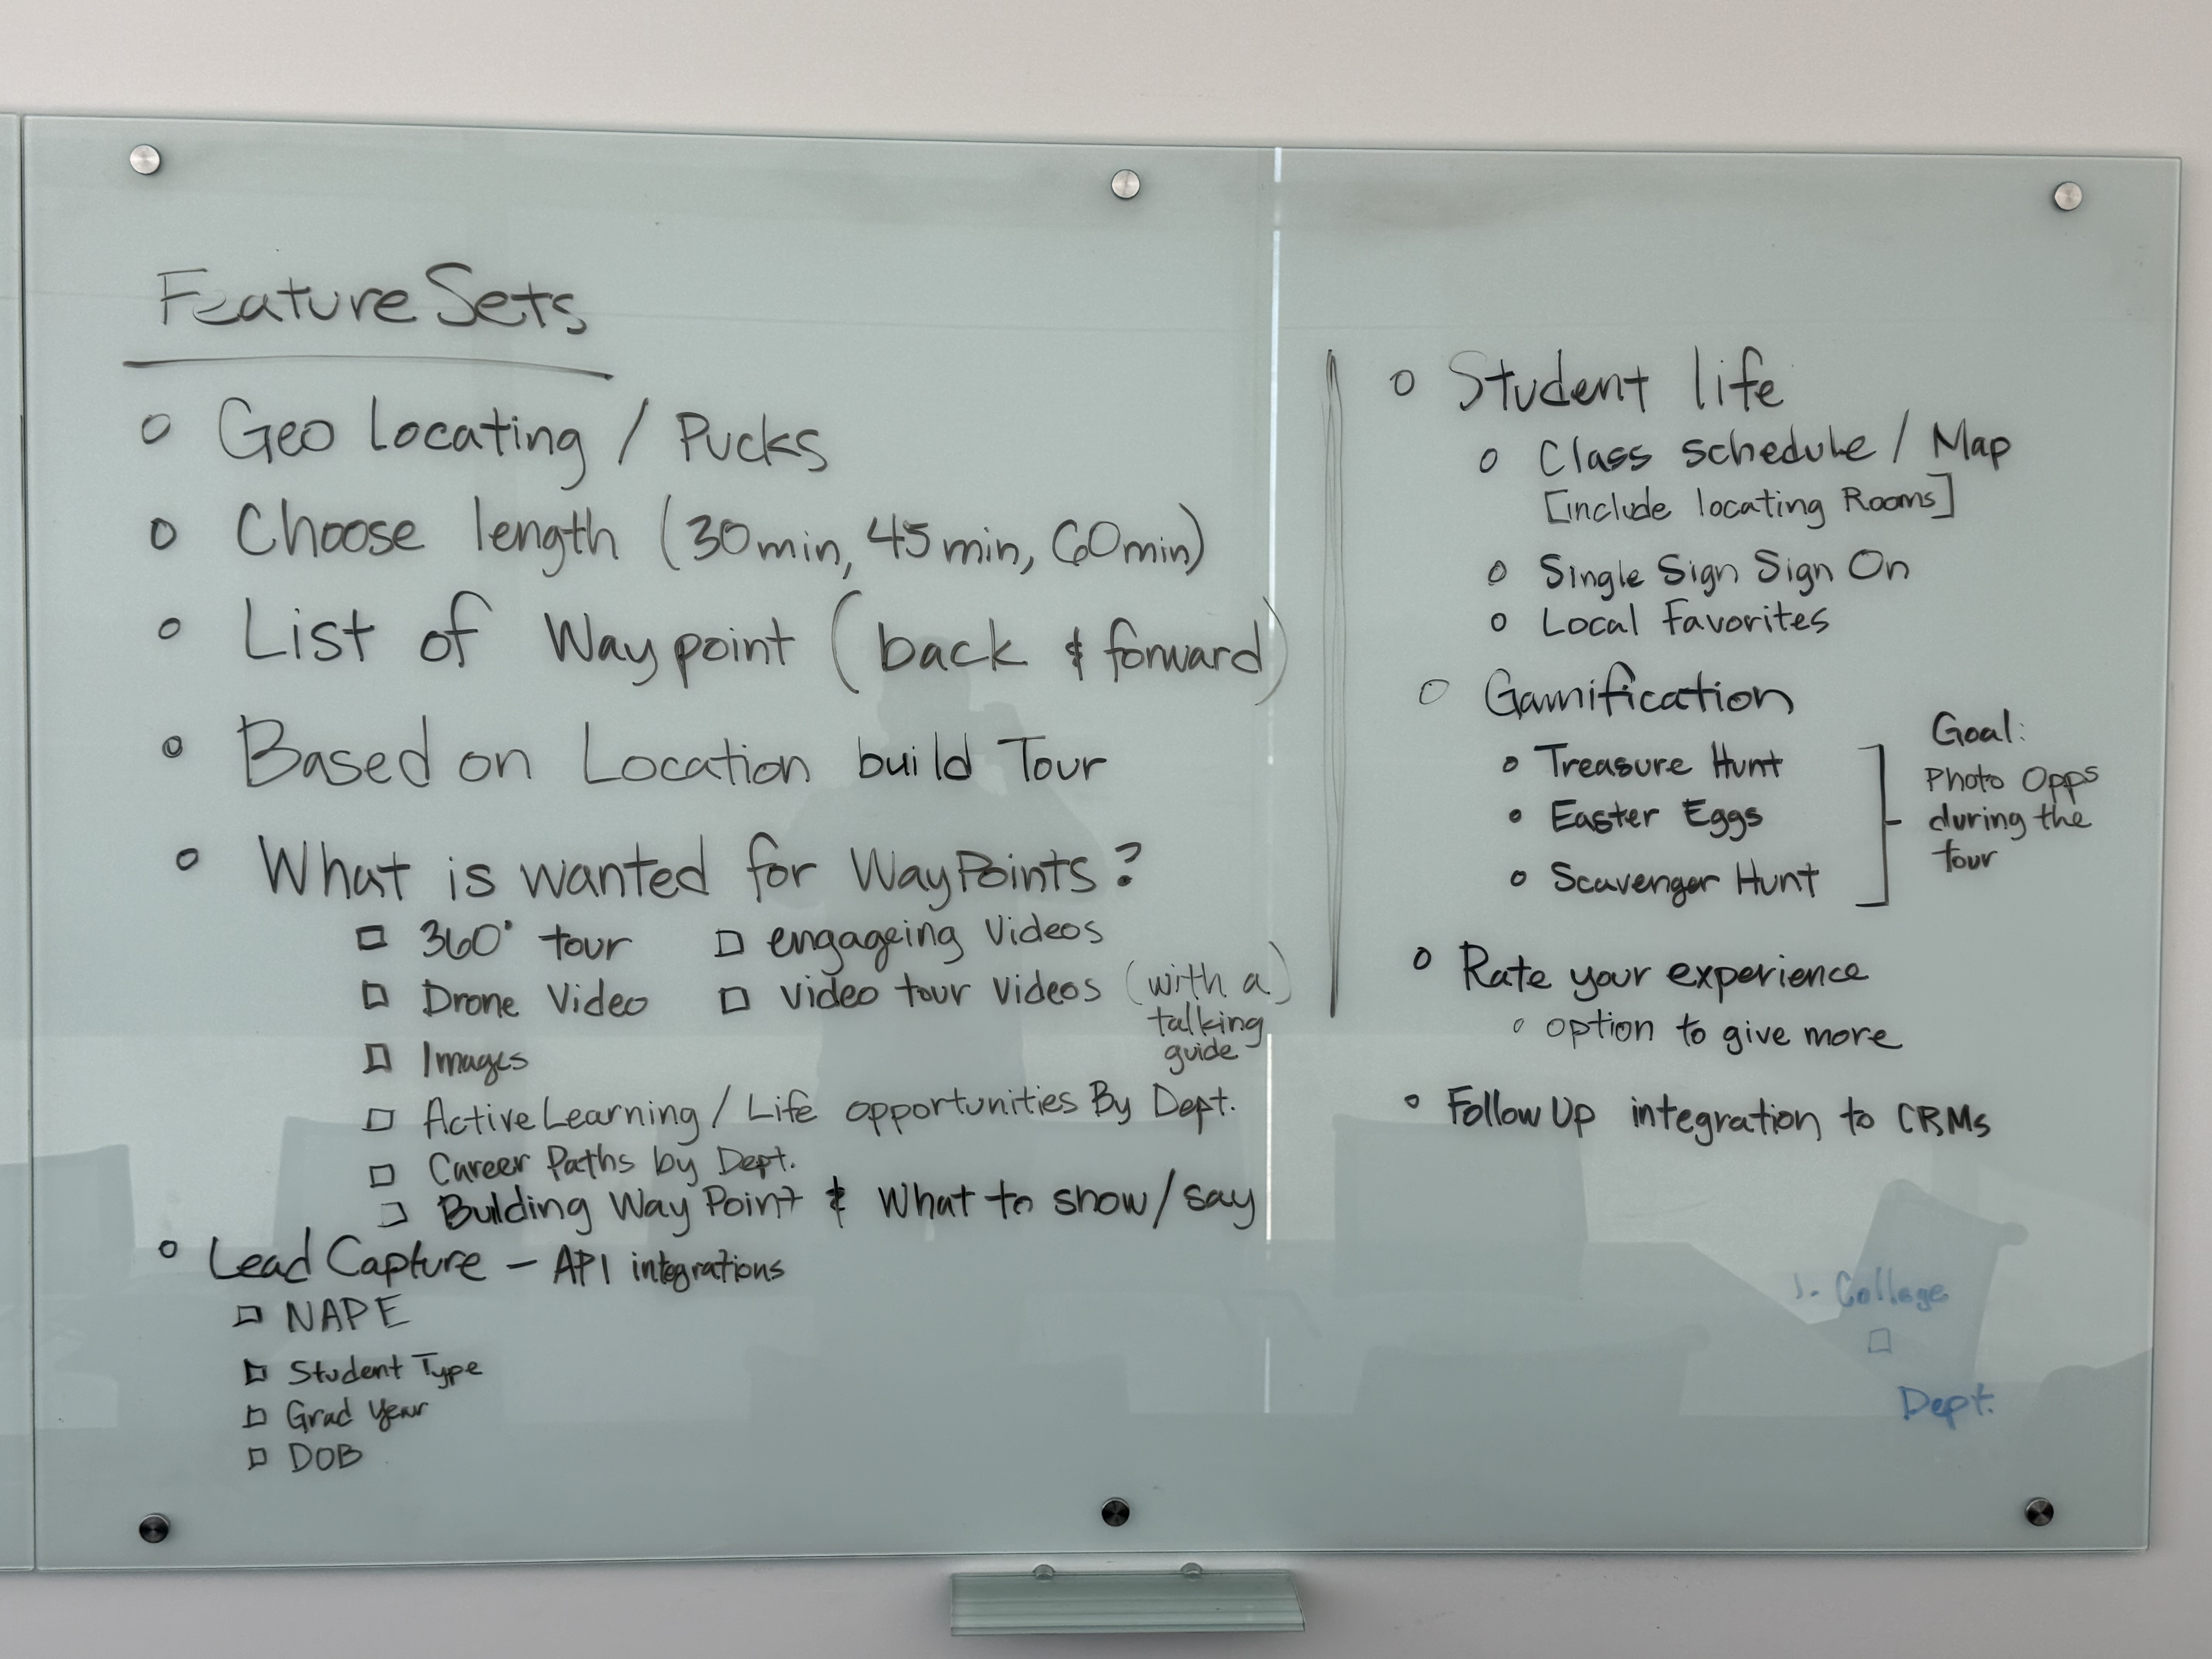 Feature Sets
○ Geo Locating / Pucks
○ Choose length (30min, 45min, 60min)
○ List of Waypoint (back & forward)
○ Based on Location build Tour
○ What is wanted for WayPoints?
□ 360° tour □ engageing Videos
□ Drone Video □ Video tour Videos (with a talking guide)
□ Images
□ Active Learning / Life opportunities By Dept.
□ Career Paths by Dept.
□ Building Way Point & What to show/say
○ Lead Capture – API integrations
□ NAPE
□ Student Type
□ Grad Year
□ DOB
○ Student life
○ Class schedule / Map
[include locating Rooms]
○ Single Sign Sign On
○ Local Favorites
○ Gamification
○ Treasure Hunt
○ Easter Eggs
○ Scavenger Hunt
Goal:
Photo Opps
during the
tour
○ Rate your experience
○ option to give more
○ Follow Up integration to CRMs
College
□
Dept.